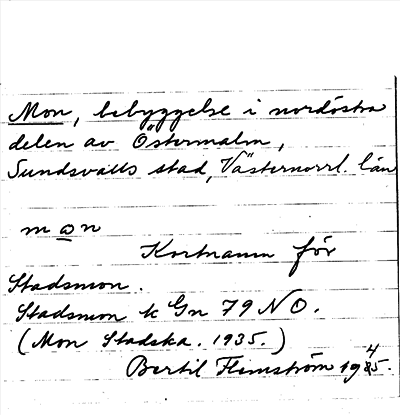 Mon, bebyggelse i nordöstra
delen av Östermalm,
Sundsvalls stad, Västernorrl. län
mon
Kortnamn för
Stadsmon.
Stadsmon k Gn 79 NO.
(Mon Stadska. 1935.)
Bertil Flemström 1945.